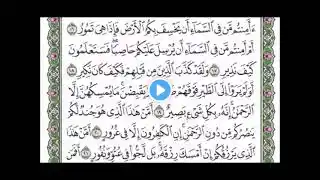 ءَأَمِنتُم مَّن فِي السَّمَاءِ أَن يَخْسِفَ بِكُمُ الْأَرْضَ فَإِذَا هِيَ تَمُورُ ١٦
أَمْ أَمِنتُم مَّن فِي السَّمَاءِ أَن يُرْسِلَ عَلَيْكُمْ حَاصِبًا فَسَتَعْلَمُونَ
كَيْفَ نَذِيرِ ١٧ وَلَقَدْ كَذَّبَ الَّذِينَ مِن قَبْلِهِمْ فَكَيْفَ كَانَ نَكِيرِ ١٨
أَوَلَمْ يَرَوْا إِلَى الطَّيْرِ فَوْقَهُمْ وَيَقْبِضْنَ مَا يُمْسِكُهُنَّ إِلَّا
الرَّحْمَٰنُ إِنَّهُ بِكُلِّ شَيْءٍ بَصِيرٌ ١٩ أَمَّنْ هَٰذَا الَّذِي هُوَ جُندٌ لَّكُمْ
يَنصُرُكُم مِّن دُونِ الرَّحْمَٰنِ إِنِ الْكَافِرُونَ إِلَّا فِي غُرُورٍ ٢٠ أَمَّنْ هَٰذَا
الَّذِي يَرْزُقُكُمْ إِنْ أَمْسَكَ رِزْقَهُ بَل لَّجُّوا فِي عُتُوٍّ وَنُفُورٍ ٢١ أَفَمَن